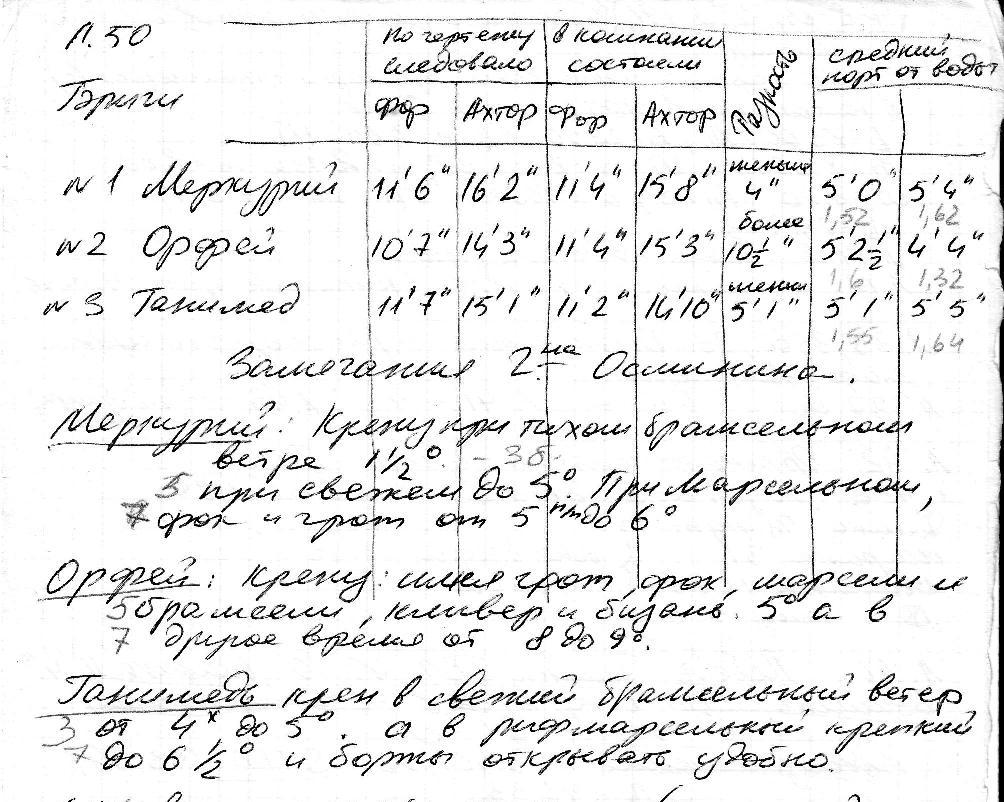 Л.50
По чертежу следовало
в кампании состояли
Разность
средний порт от воды
Бриги
Фор Ахтор Фор Ахтор
N1 Меркурий 11'6" 16'2" 11'4" 15'8" меньше 4" 5'0" 5'4"
1,52 1,62
N2 Орфей 10'7" 14'3" 11'4" 15'3" более 10½" 5'2½" 4'4"
1,6 1,32
N3 Ганимед 11'7" 15'1" 11'2" 14'10" менее 5'1" 5'1" 5'5"
1,55 1,64
Замечания 2на Осминина.
Меркурий: Крену при тихом брамсельном
ветре 1½° - 3б.
5 при свежем до 5°. При Марсельном,
7 фок и грот от 5ти до 6°
Орфей: крену: имея грот, фок, марсели и
5 брамсели, кливер и бизань. 5° а в
7 другое время от 8 до 9°.
Ганимедъ крен в свежий брамсельный ветер
3 от 4х до 5°. а в рифмарсельный крепкий
7 до 6½° и борты открывать удобно.